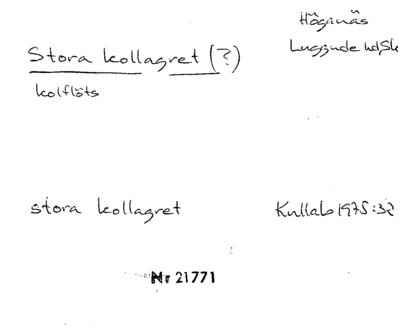 Höganäs
Luggude hd, Sk
Stora kollagret (?)
kolflöts
stora kollagret
Kullabo 1975:32
Nr 21771